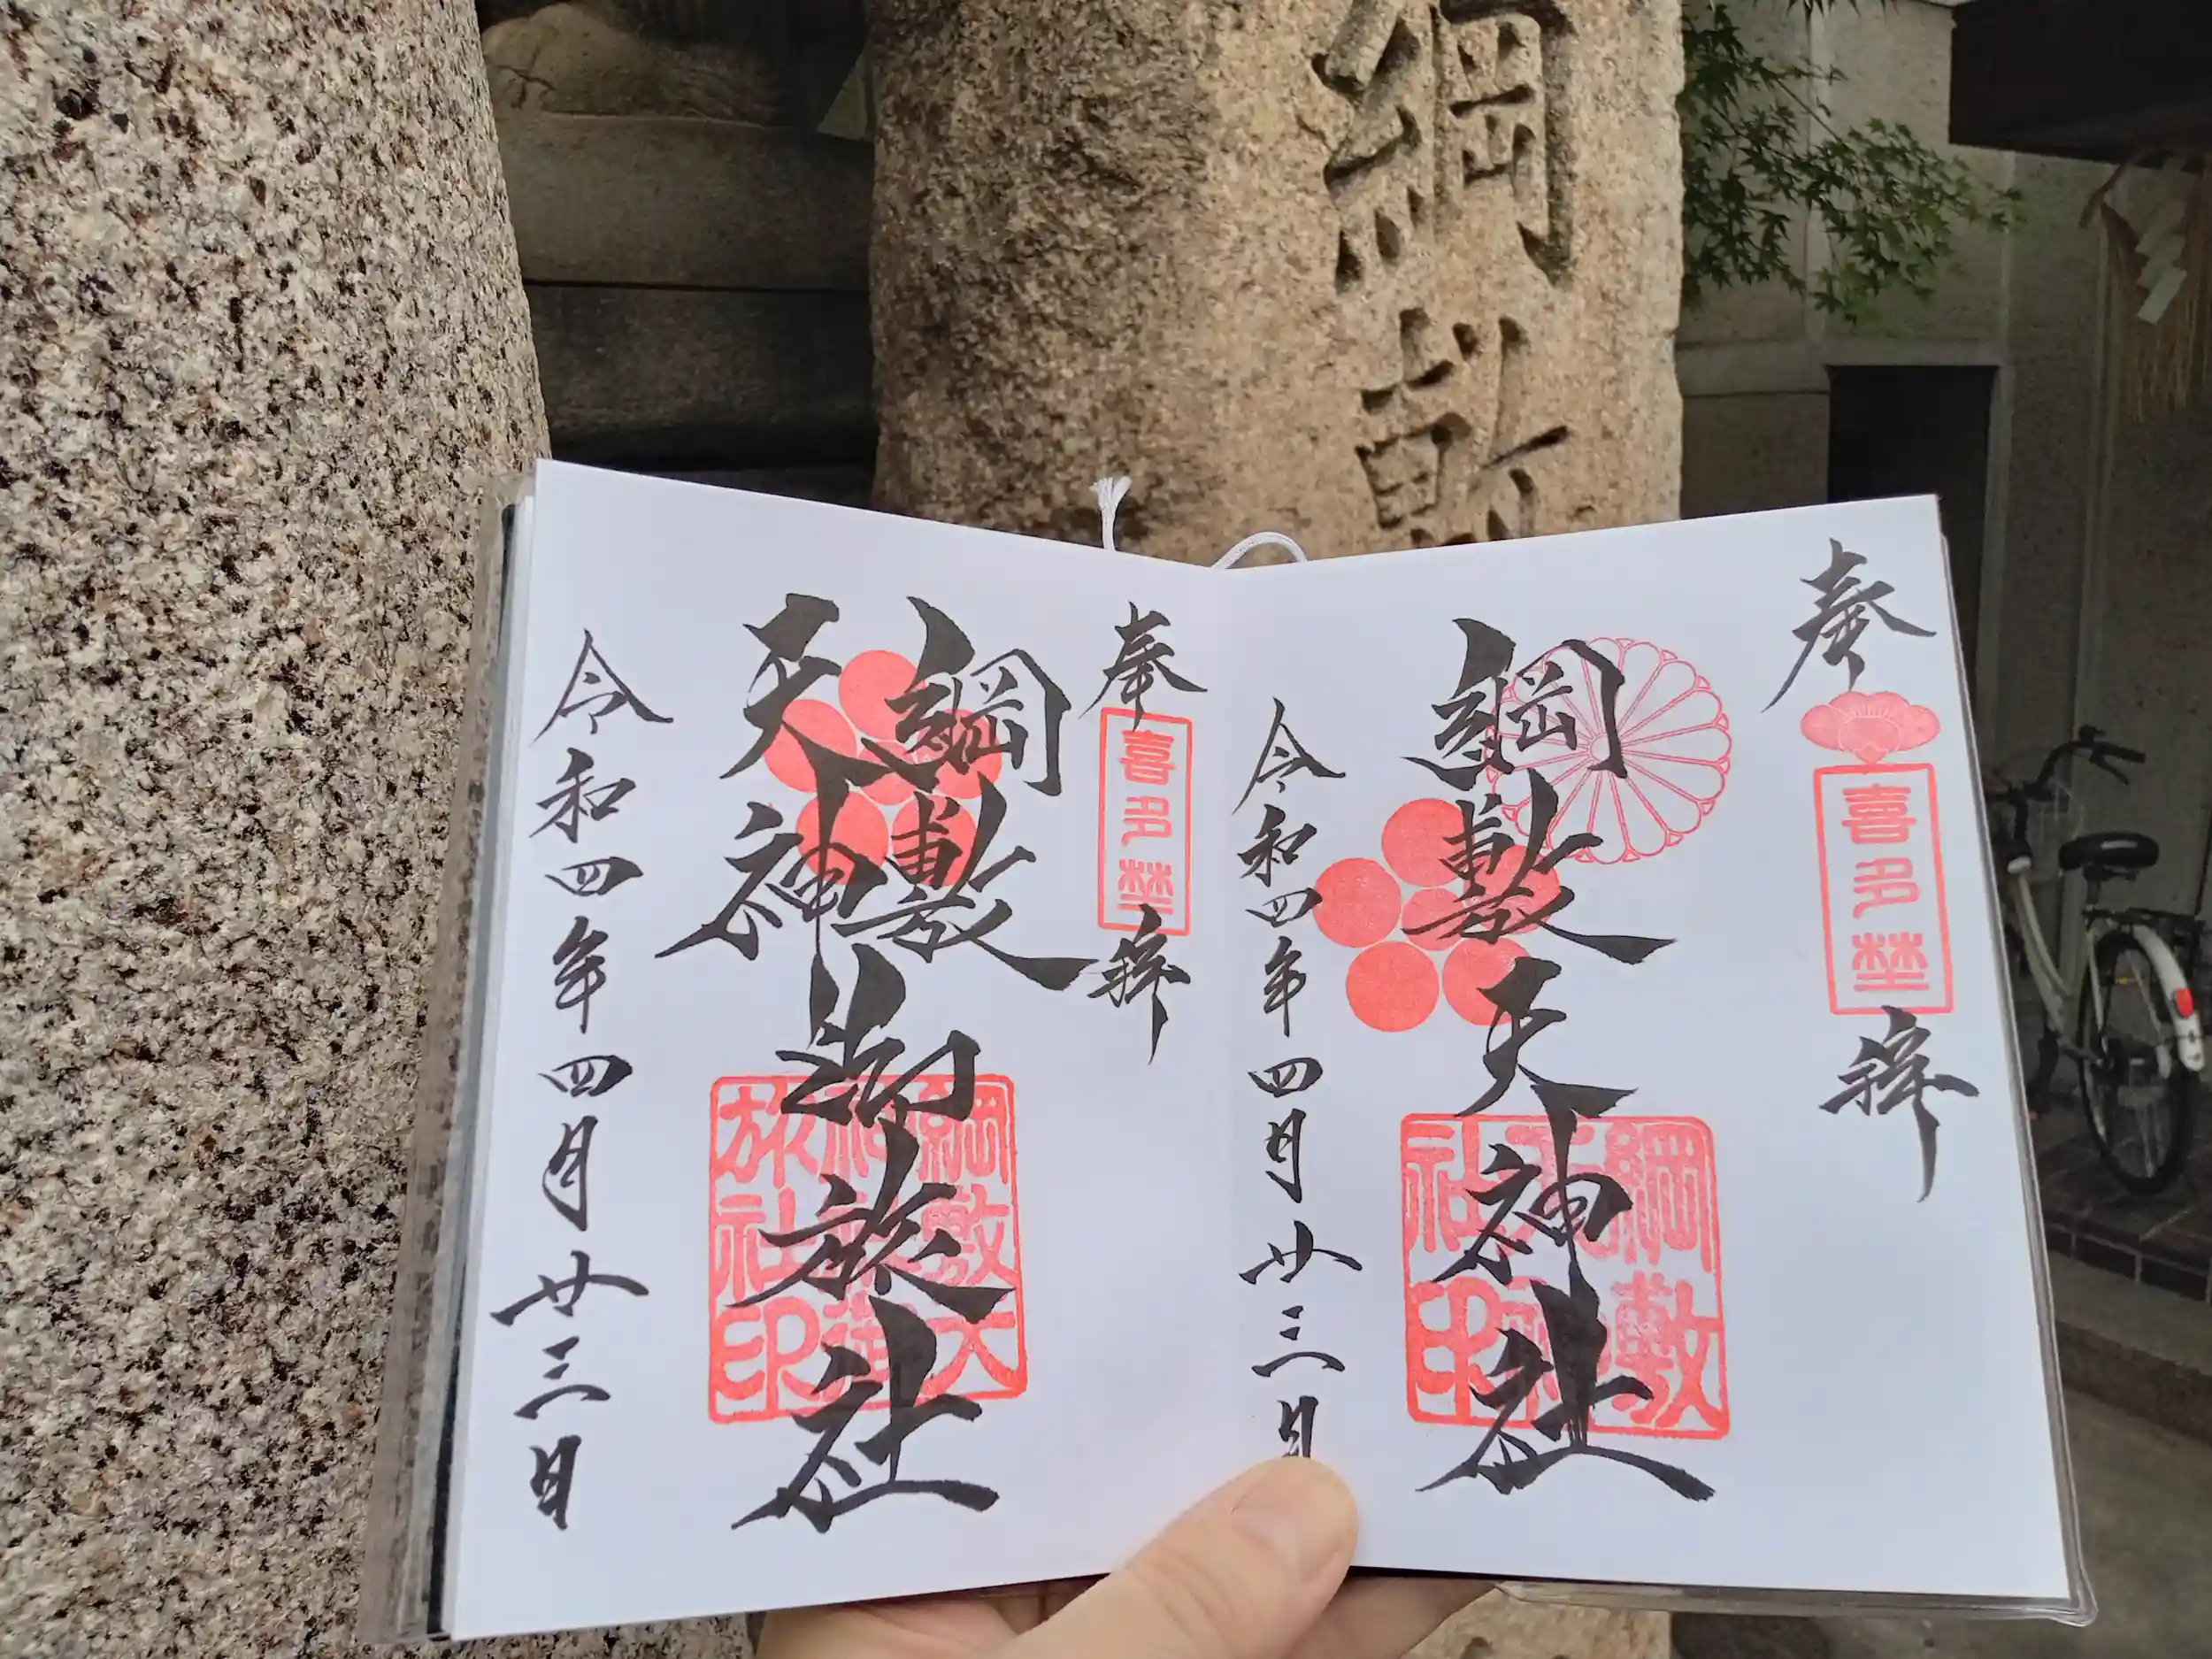 綱敷
奉拝
喜多埜
綱敷天神社
綱敷天神社印
令和四年四月廿三日
奉拝
喜多埜
綱敷
天神御旅社
令和四年四月廿三日